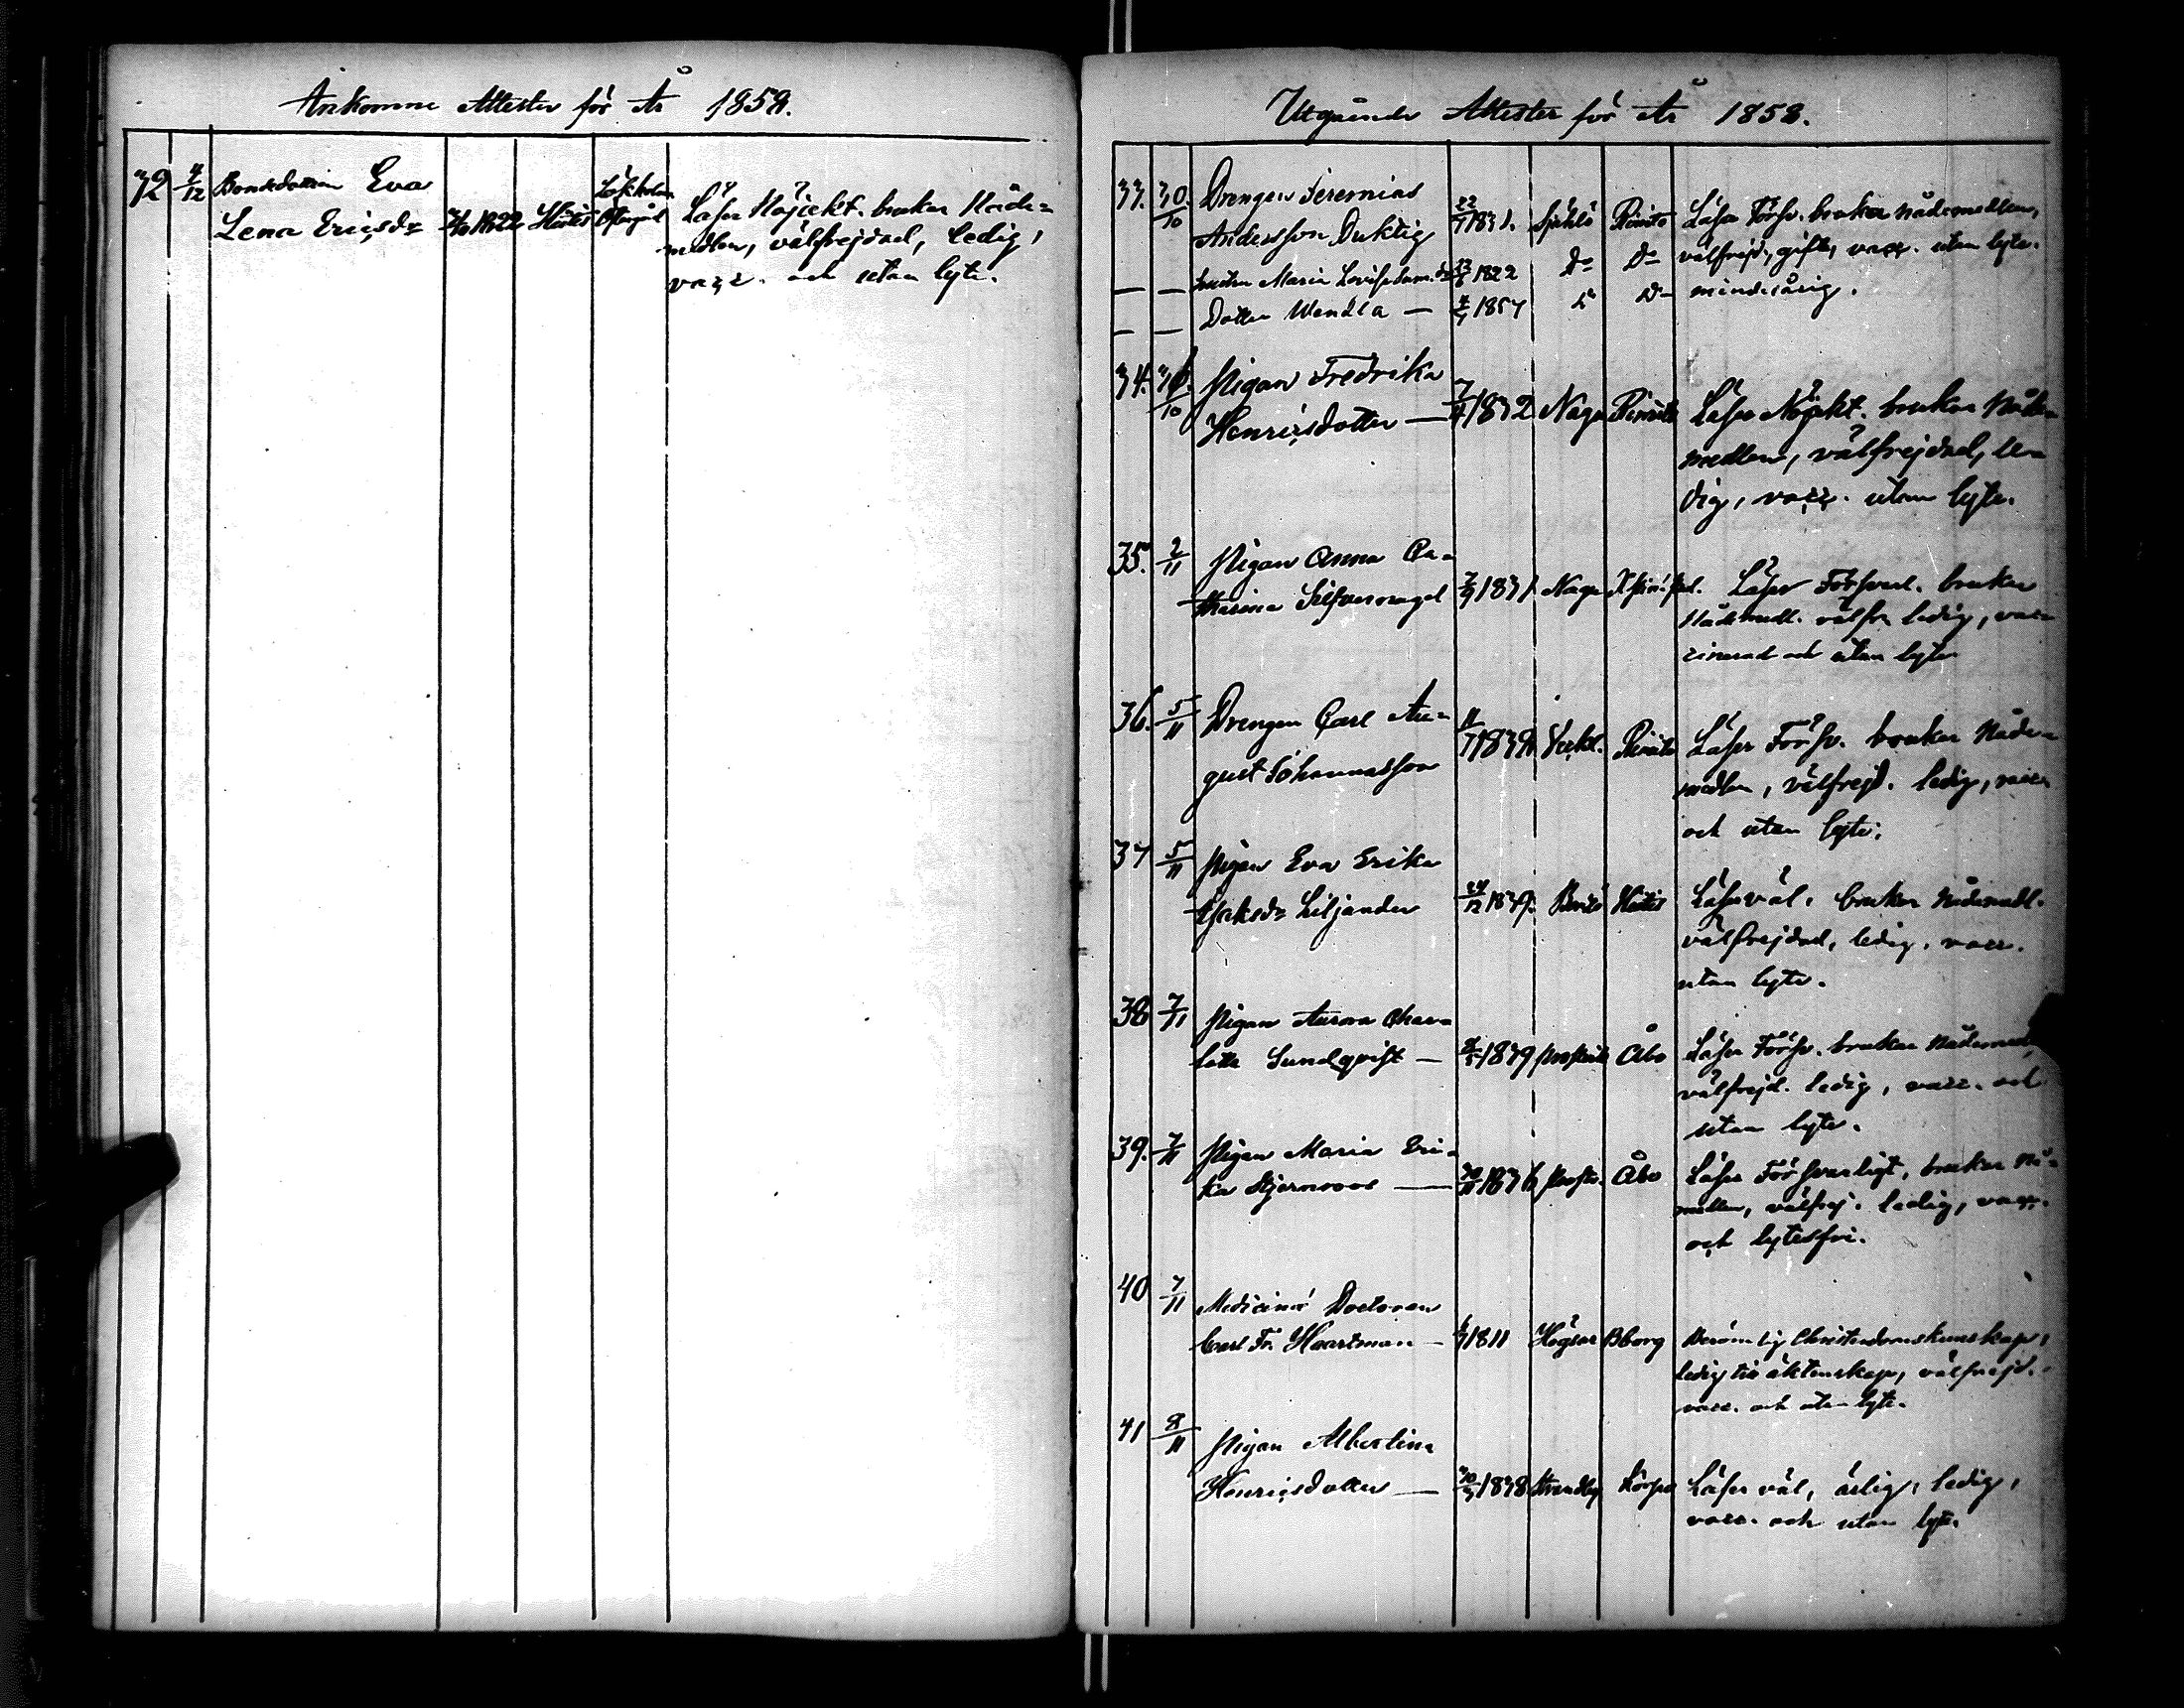 Ankomne Attester för År 1858.
32 4/12 Bondedottren Eva
Lena Ericsdr 1822 Hitis
Läser Nöjakt. brukar Nåde=
medlen, välfrejdad, ledig,
vacc. och utan lyte.
Utgående Attester för År 1858.
33. 30/10 Drengen Jeremias
Andersson Duktig 22/7 1831. Själslö Rimito Läser Försv. brukar nådemedlen,
välfrejd, gift, vacc. utan lyte.
— — hustru Maria Lovisa 1822 Do Do
mindreårig.
— — Dotter Wendla — 1857 Do Do
34. 30/10 Pigan Fredrika
Henricsdotter — 7/4 1832 Nagu Rimito Läser Nöjakt. brukar Nåde=
medlen, välfrejdad, le=
dig, vacc. utan lyte.
35. 2/11 Pigan Anna Ca=
tharina Silfvernagel 7/9 1831 Nagu Läser Försvarl. brukar
Nådemedl. välfr. ledig, vac=
cinerad och utan lyte
36. 5/11 Drengen Carl Au=
gust Johannesson 11/7 1838 Rimito Läser Försv. brukar Nåde=
medlen, välfrejd. ledig, vacc.
och utan lyte.
37 5/11 Pigan Eva Erika
Isaksdr Liljander 24/12 1839. Hitis Läser väl. brukar Nådemedl.
välfrejdad, ledig. vacc.
utan lyte.
38 7/11 Pigan Aurora Char=
lotta Sundqvist — 1839 Åbo Läser Försv. brukar Nådemed
välfrejd. ledig, vacc. och
utan lyte.
39. 7/11 Pigan Maria Eri=
ka Stjernroos — 1836 Åbo Läser Försvarligt, brukar Nå=
medlen, välfrej. ledig, vacc.
och lytesfri.
40 7/11 Medicine Doctoren
Carl Fr. Haartman — 1811 Högsar Bborg Berömlig Christendomskunskap,
ledig till äktenskap, välfrejd.
vacc. och utan lyte.
41 8/11 Pigan Albertina
Henricsdotter — 1838 Strandby Korpo Läser väl, ärlig, ledig,
vacc. och utan lyte.